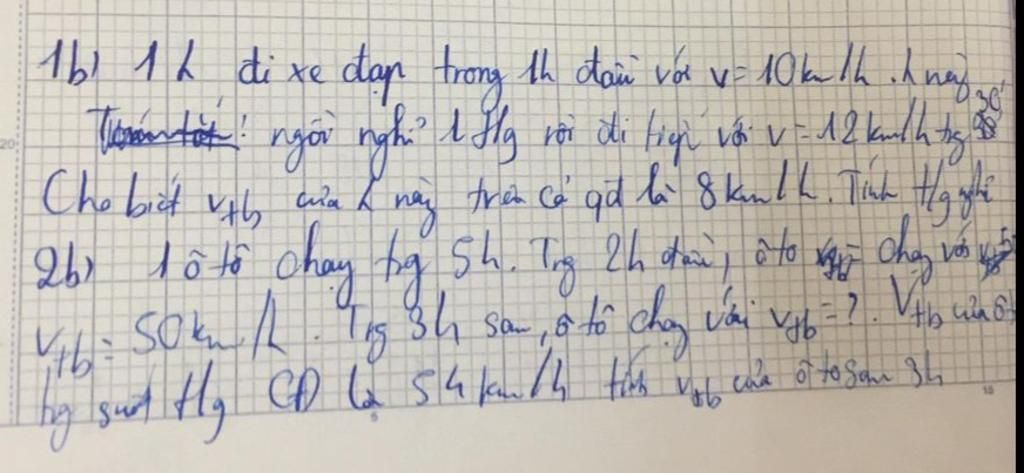 1b) 1 h đi xe đạp trong 1h đầu với v = 10km/h. h này
ngồi nghỉ 1 tg rồi đi tiếp với v = 12km/h tg 30'
Cho biết vtb của h này trên cả qđ là 8km/h. Tính tg nghỉ
2b) 1 ô tô chạy tg 5h. Trg 2h đầu, ô tô chạy với
vtb = 50km/h. Trg 3h sau, ô tô chạy với vtb = ?. Vtb của ô tô
tg suốt tg CĐ là 54km/h tính vtb của ô tô sau 3h
20